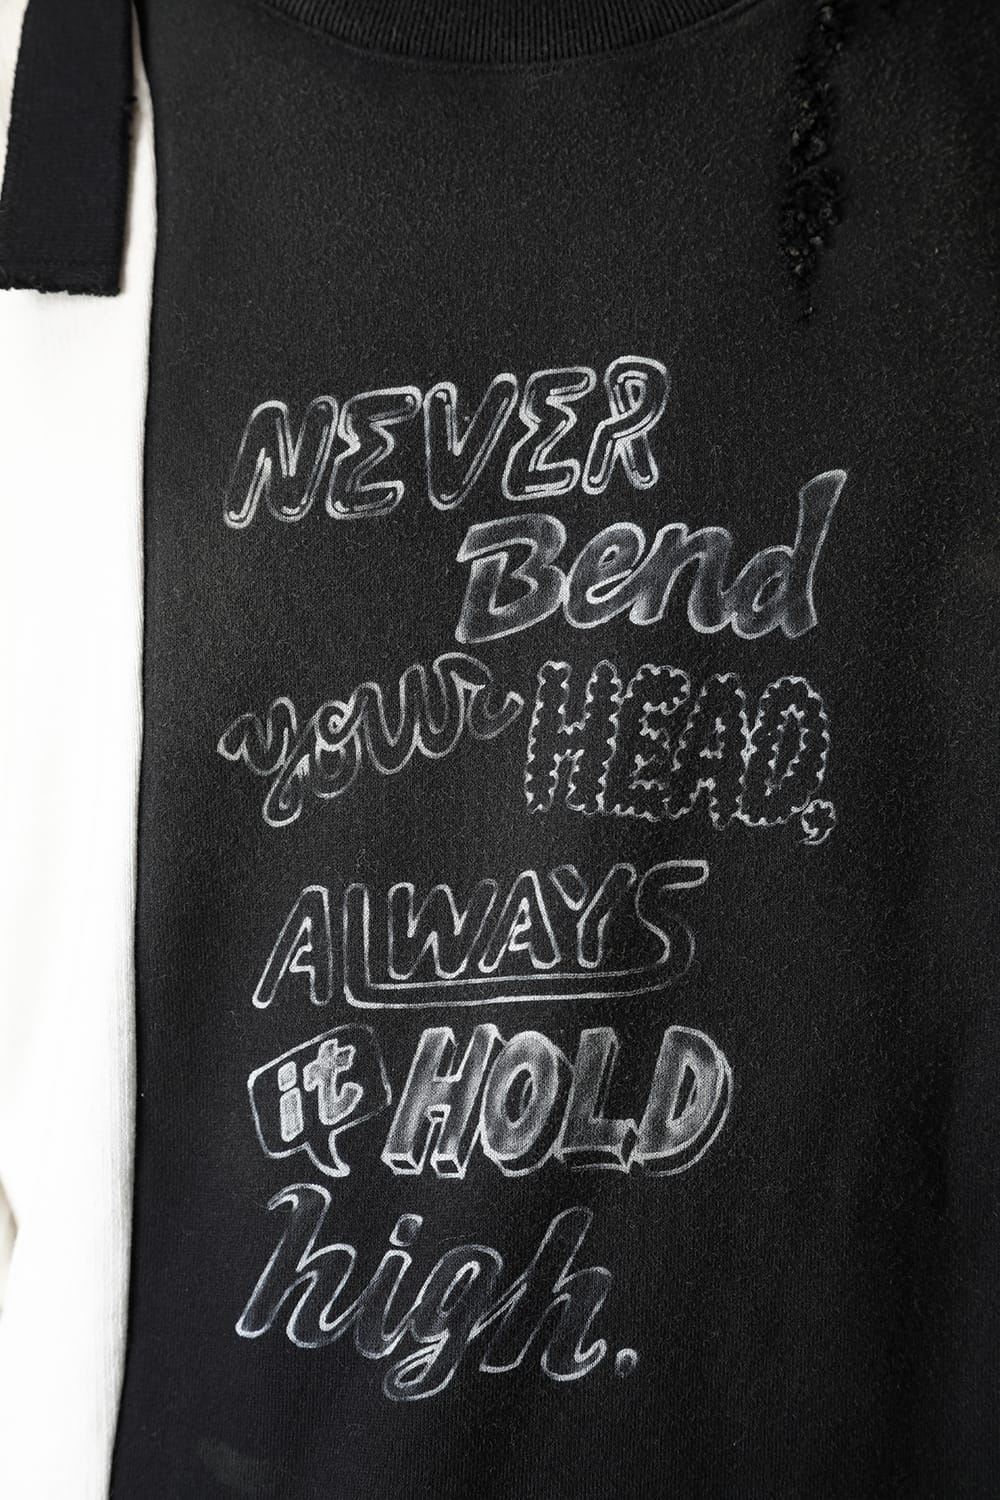 NEVER
Bend
your HEAD,
ALWAYS
it HOLD
high.